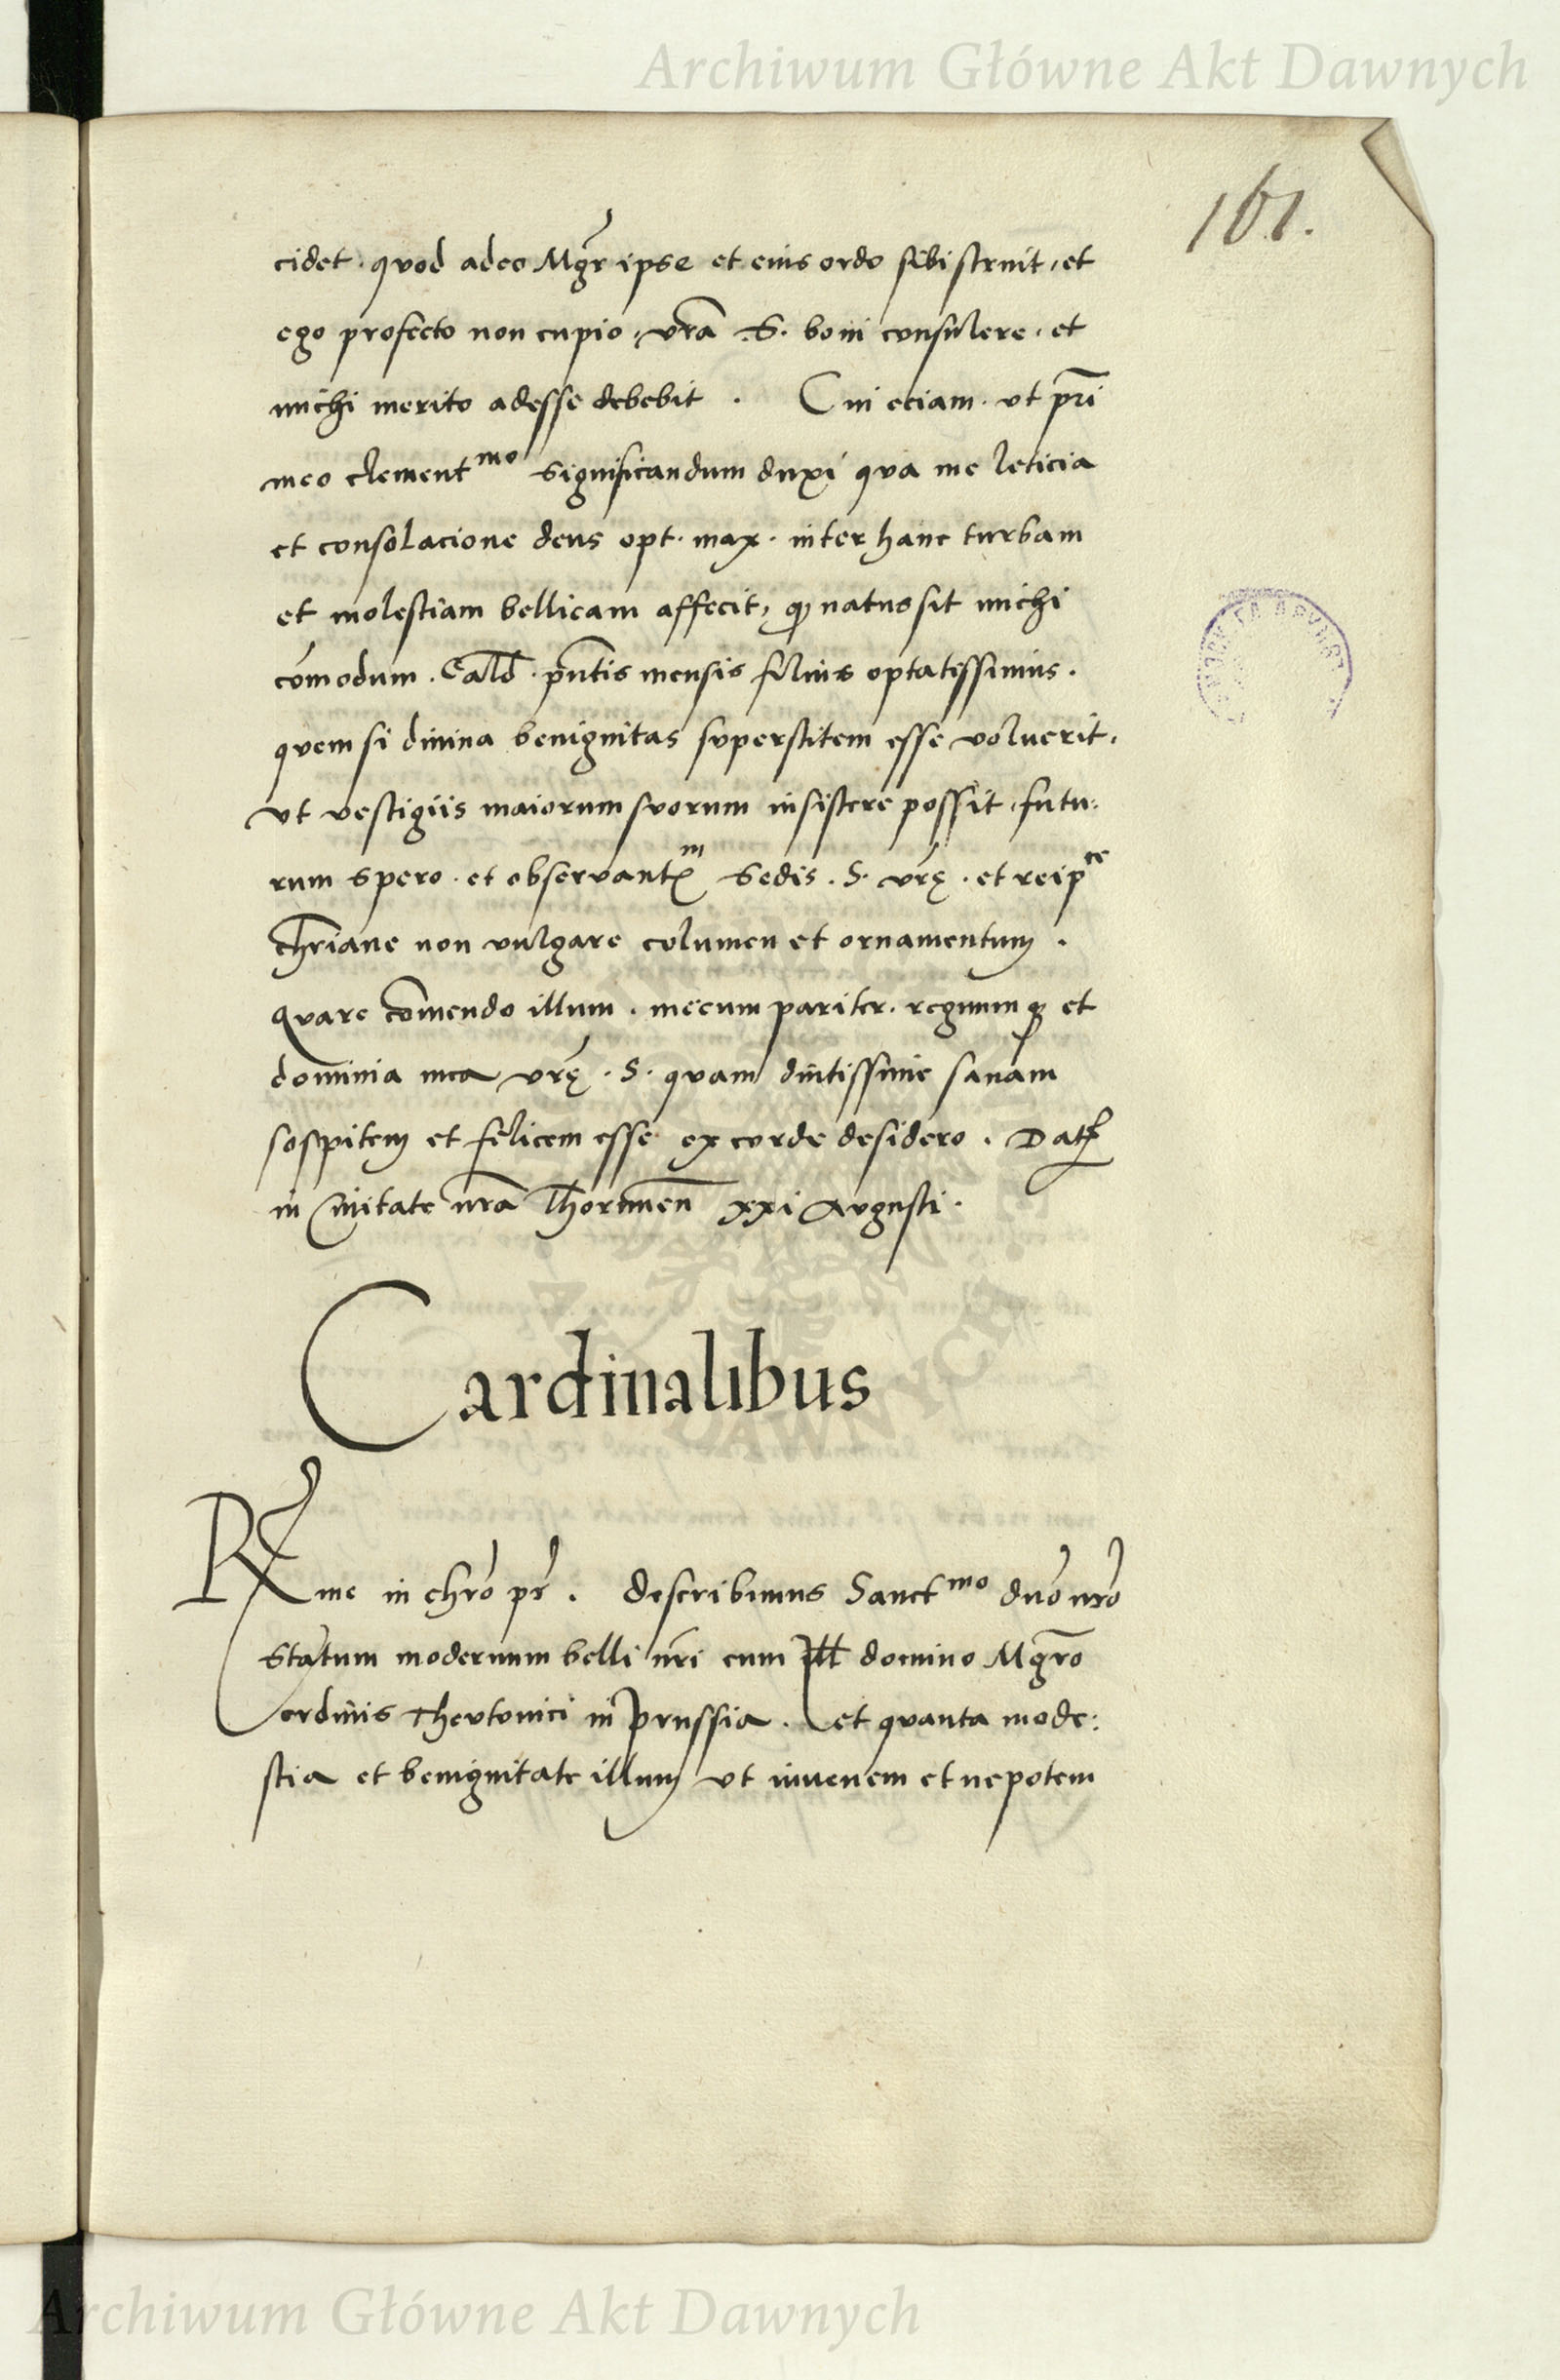 Archiwum Główne Akt Dawnych
161.
cidet. quod adeo Mgr̄ ipse et eius ordo sibi struit, et
ego profecto non cupio, vrā .S. boni consulere, et
michi merito adesse debebit . Cui eciam. ut pr̄i
meo clementᵐᵒ significandum duxi qua me leticia
et consolacione deus opt. max. inter hanc turbam
et molestiam bellicam affecit, ꝙ natus sit michi
cōmodum . Cald̄ . pn̄tis mensis filius optatissimus .
quem si divina benignitas superstitem esse voluerit,
ut vestigiis maiorum suorum insistere possit, futu:
rum spero. et observantᵐ Sedis . S. vrę̄ . et reipᶜᵉ
chr̄iane non vulgare columen et ornamentum .
Quare cōmendo illum . mecum pariter. regnumqꝫ et
dominia mea vrę̄ . S. quam diutissime sanam
sospitem et felicem esse ex corde desidero . Datꝭ
in Civitate nrā Thorunen̄ xxi Augusti.
Cardinalibus
Rme in chrō pr̄ . Describimus Sanctᵐᵒ dn̄o nrō
Statum modernum belli nr̄i cum Ill domino Mgrō
ordinis Theutonici in Prussia . et quanta mode:
stia et benignitate illum ut iuvenem et nepotem
DAWNYCH
Archiwum Główne Akt Dawnych